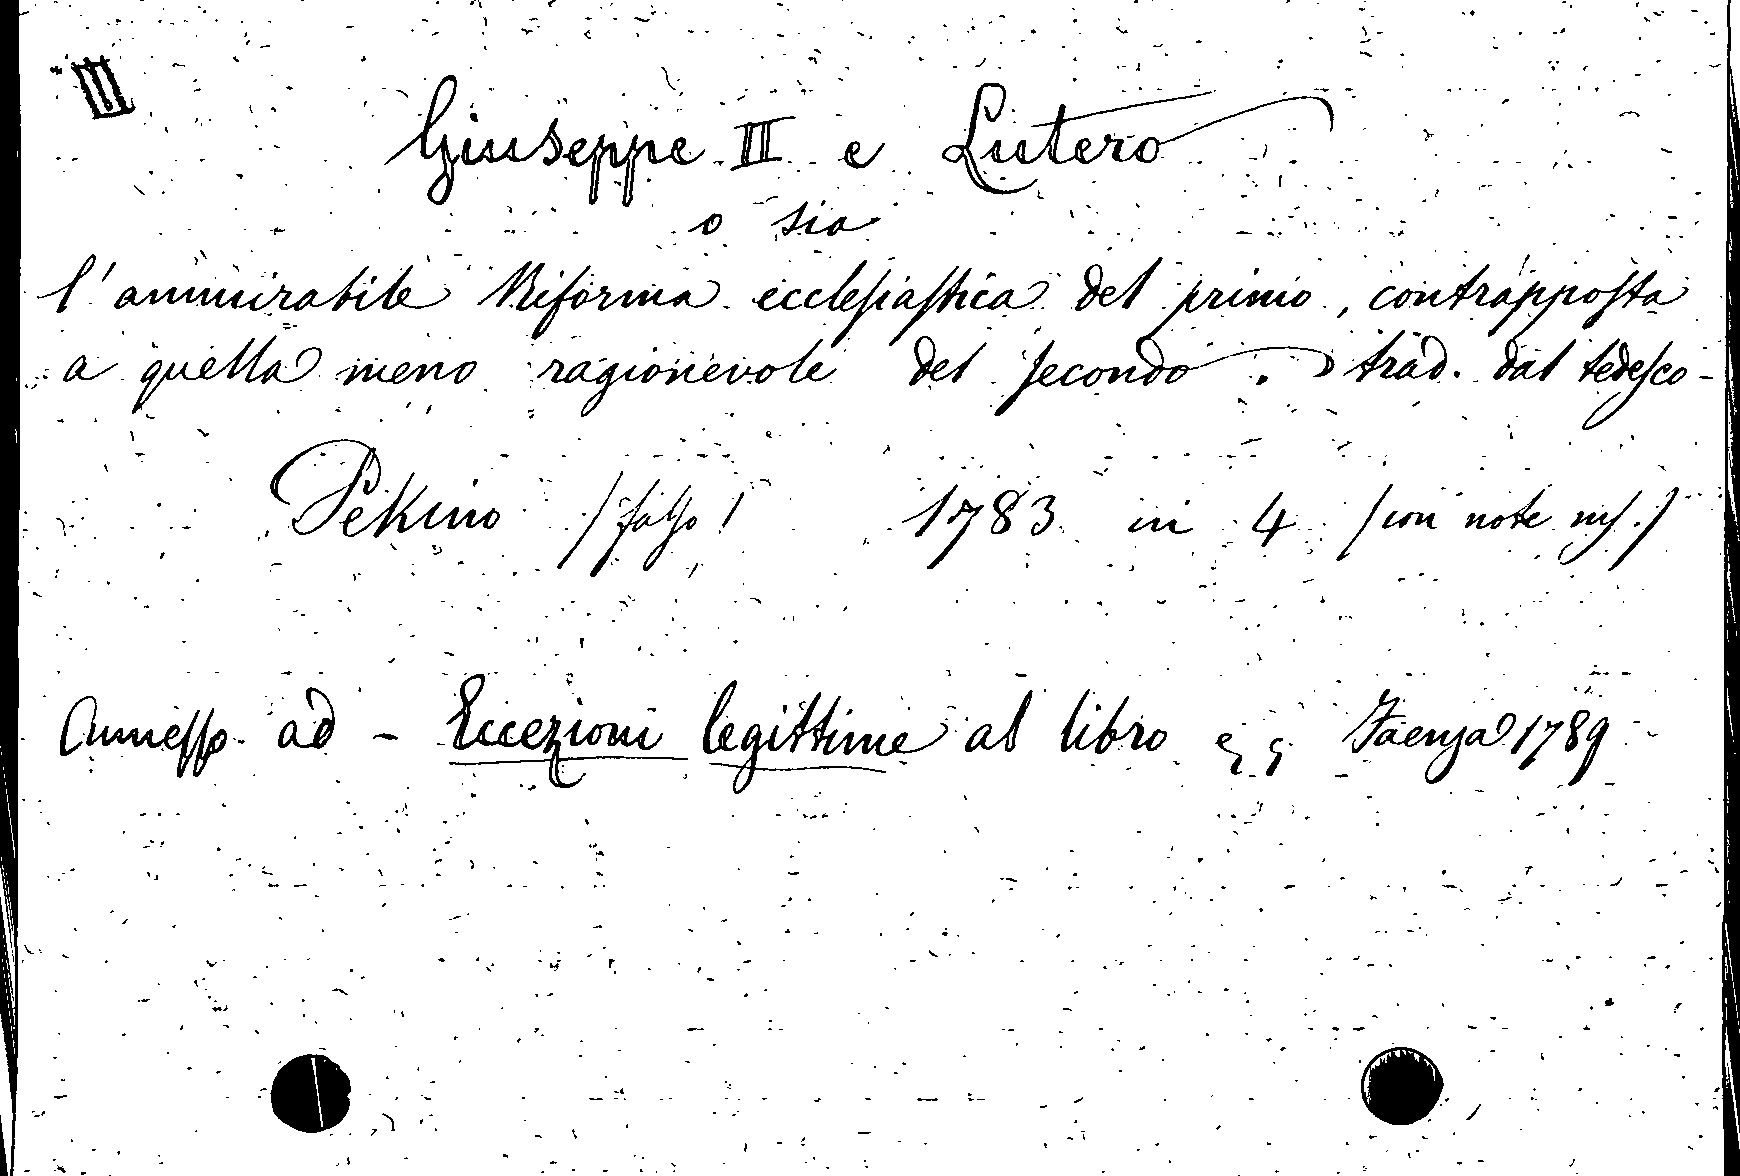 III
Giuseppe II e Lutero
o sia
l'ammirabile Riforma ecclesiastica del primo, contrapposta
a quella meno ragionevole del secondo. trad. dal tedesco -
Pekino /falso/ 1783 in 4 /con note ms./
Annesso ad - Eccezioni legittime al libro Faenza 1789